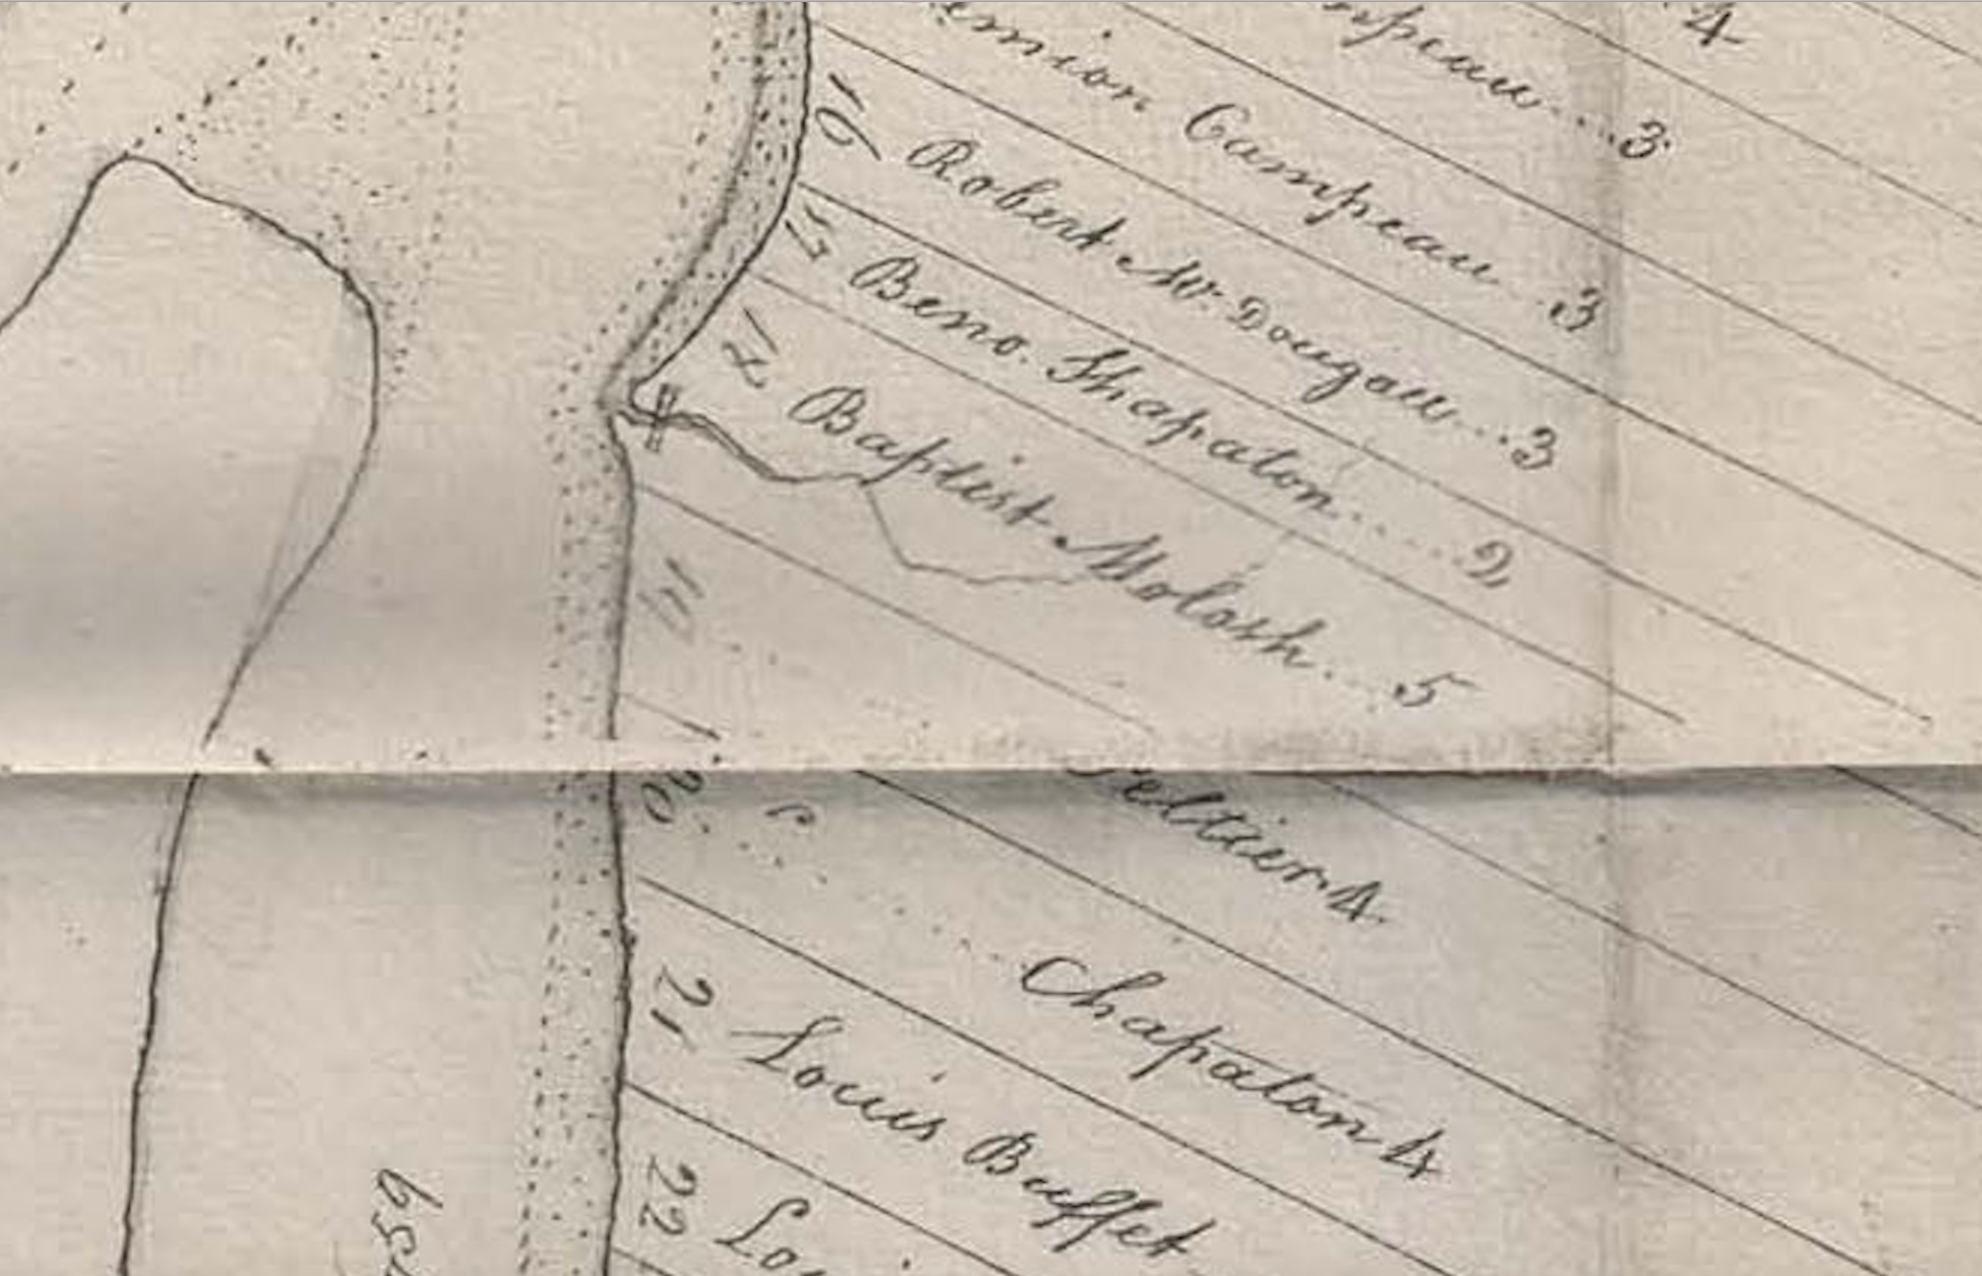 4
mpeau....3
mion Campeau...3
16 Robert McDougall...3
17 Beno. Shapaton.....2
Baptist Molosh....5
19
20
Peltier. 4.
Chapaton 4
21 Louis Buffet
22